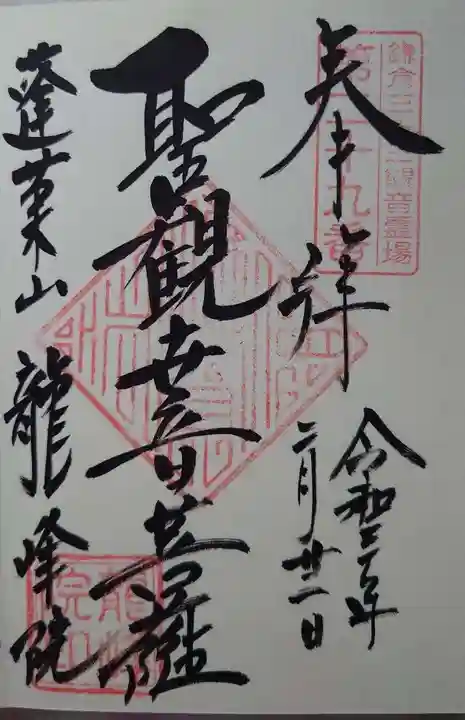 鎌倉三十三観音霊場
第二十九番
奉拝
令和三年
二月廿一日
聖観世音菩薩
蓬莱山 龍峰院
龍峰院印